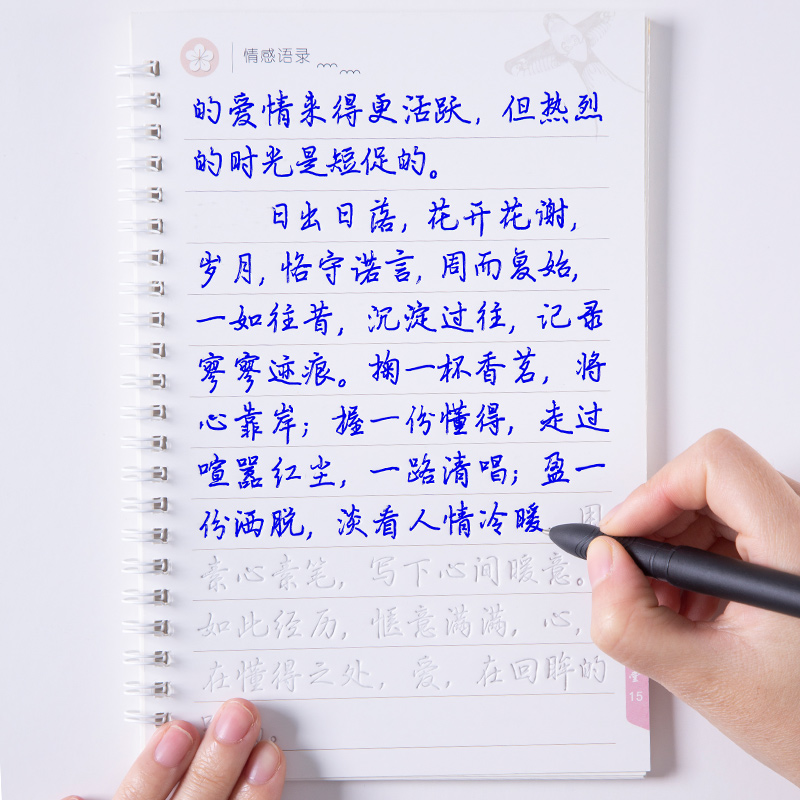 情感语录
的爱情来得更活跃，但热烈
的时光是短促的。
日出日落，花开花谢，
岁月，恪守诺言，周而复始，
一如往昔，沉淀过往，记录
寥寥迹痕。掬一杯香茗，将
心靠岸；握一份懂得，走过
喧嚣红尘，一路清唱；盈一
份洒脱，淡看人情冷暖 用
素心素笔，写下心间暖意。
如此经历，惬意满满，心，
在懂得之处，爱，在回眸的
15